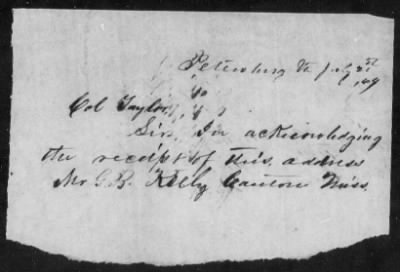 Petersburg Va July 21st
Col Taylor,
Sir, In acknowledging
the receipt of this, address
Mr G.B. Kelly Canton Miss.